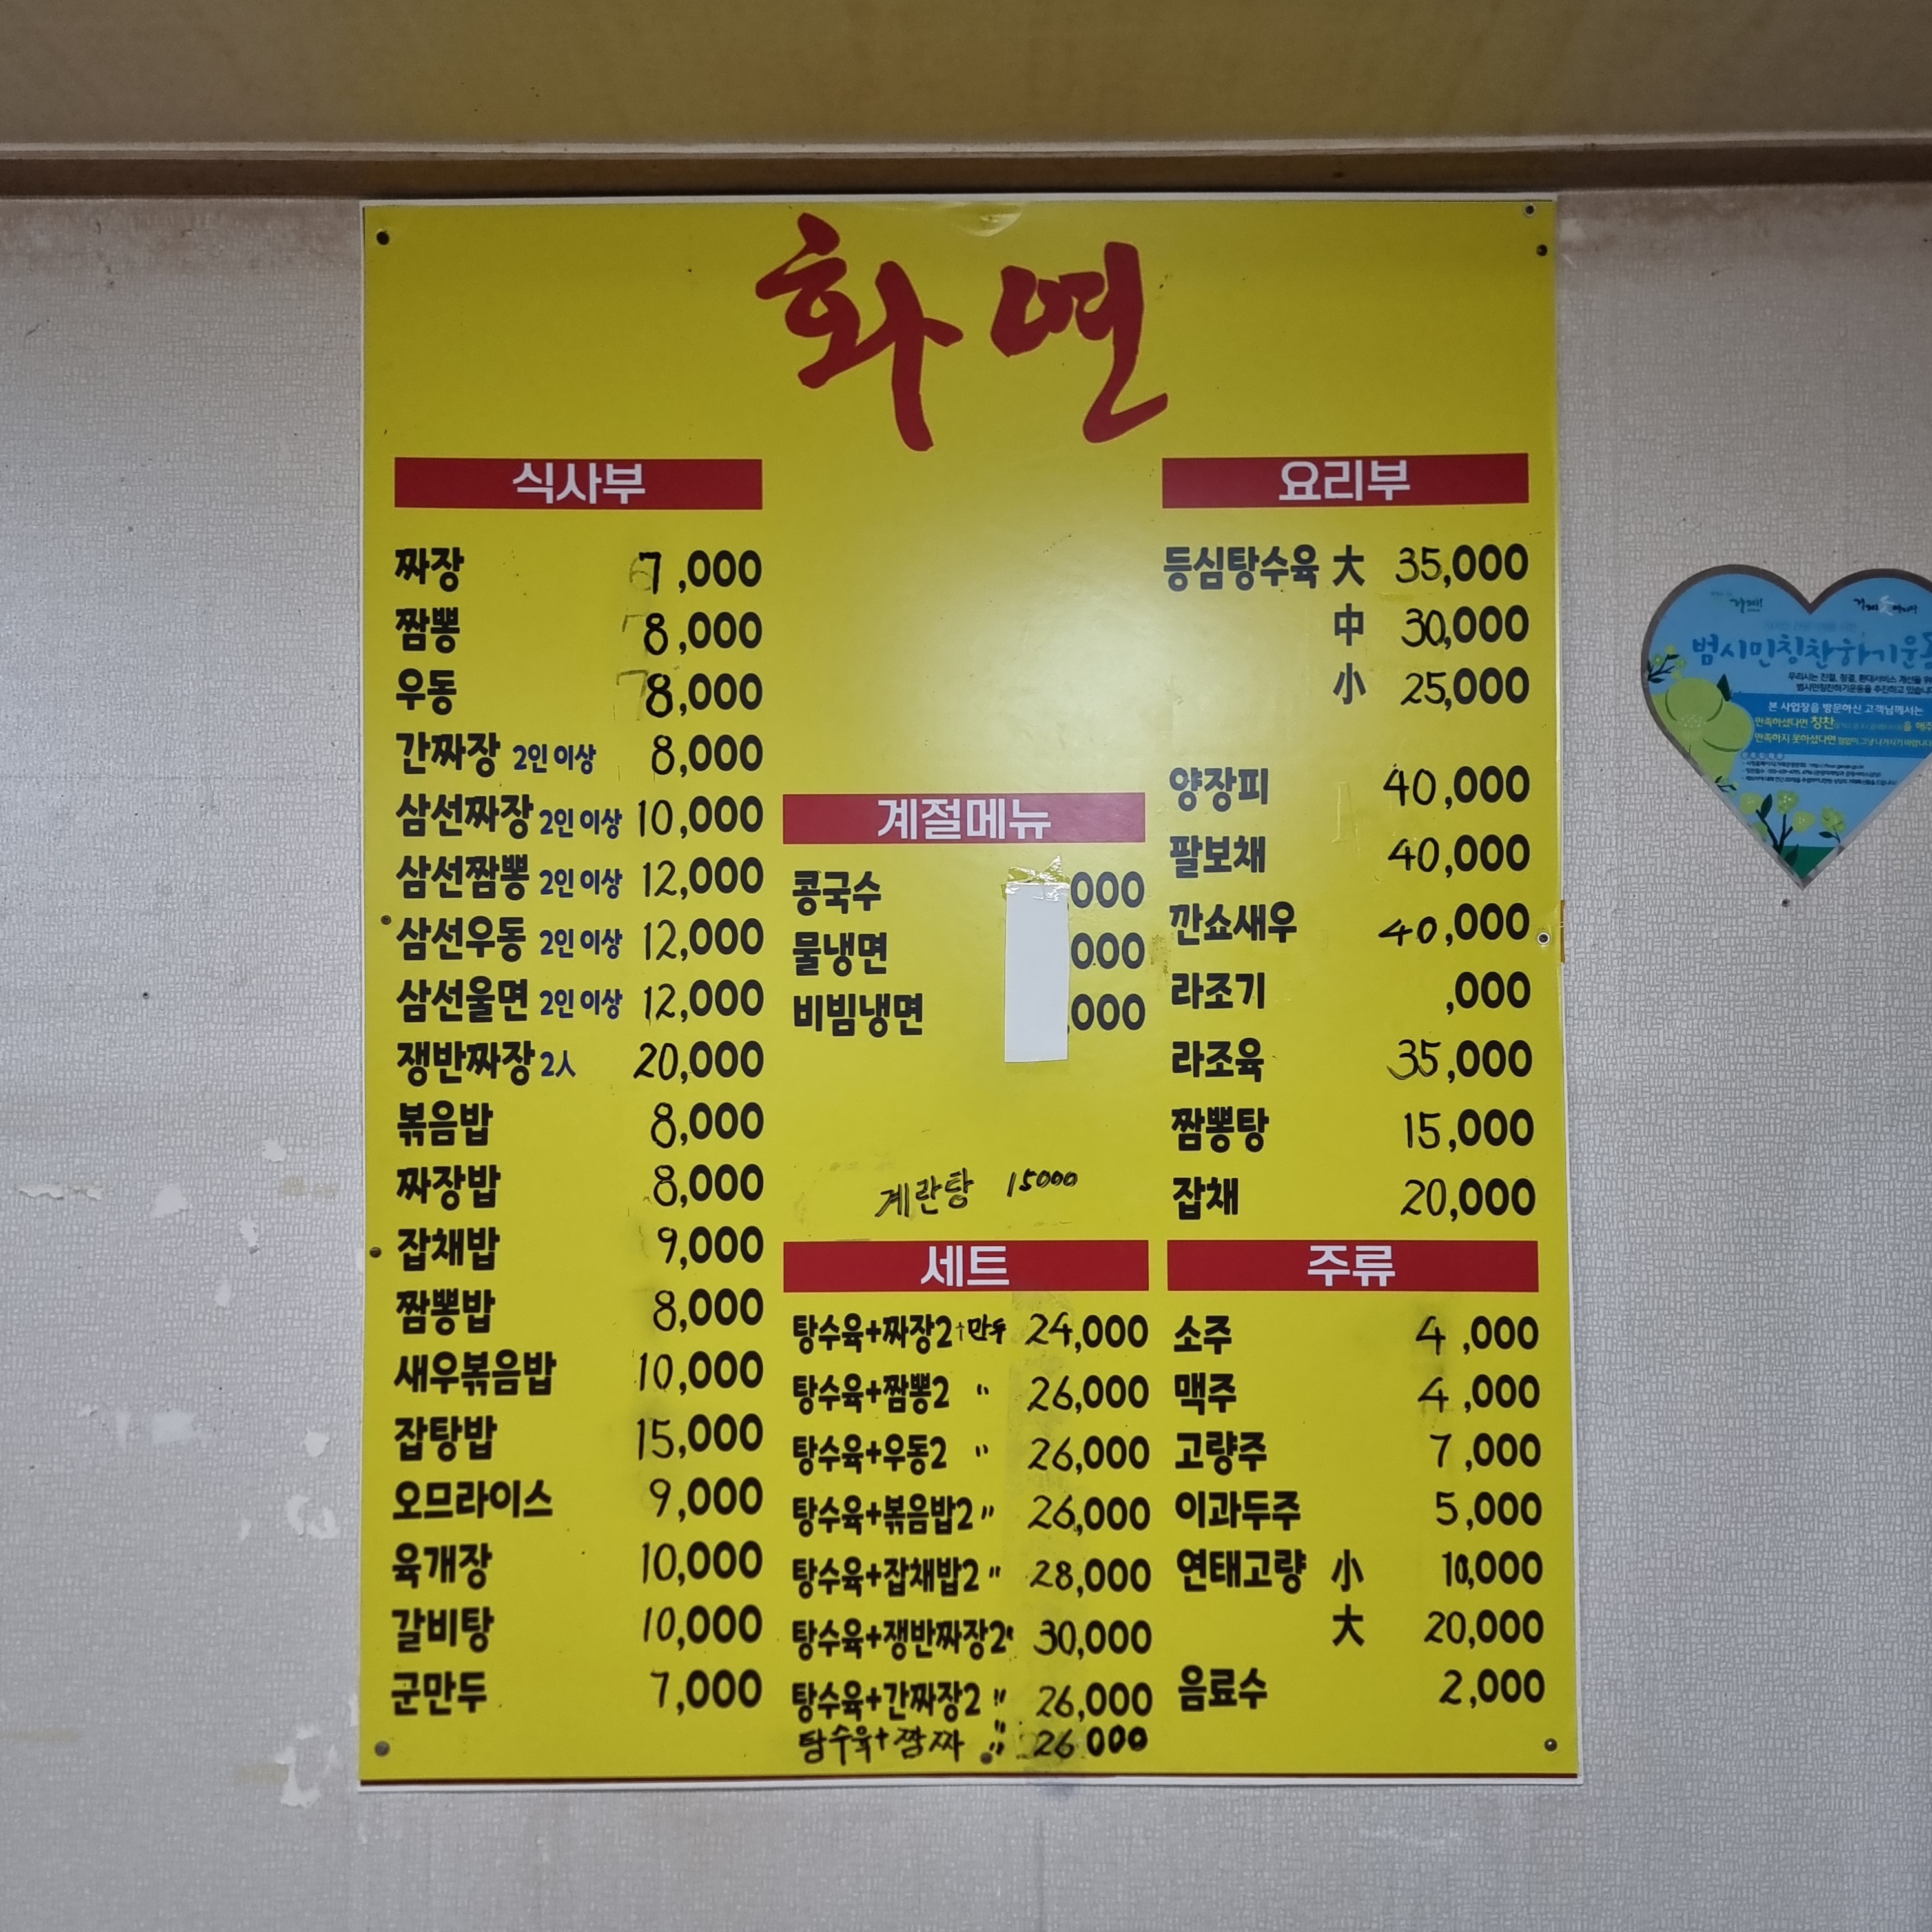 화면
식사부
짜장 7,000
짬뽕 8,000
우동 8,000
간짜장 2인 이상 8,000
삼선짜장 2인 이상 10,000
삼선짬뽕 2인 이상 12,000
삼선우동 2인 이상 12,000
삼선울면 2인 이상 12,000
쟁반짜장 2人 20,000
볶음밥 8,000
짜장밥 8,000
잡채밥 9,000
짬뽕밥 8,000
새우볶음밥 10,000
잡탕밥 15,000
오므라이스 9,000
육개장 10,000
갈비탕 10,000
군만두 7,000
계절메뉴
콩국수 ,000
물냉면 ,000
비빔냉면 ,000
계란탕 15000
세트
탕수육+짜장2+만두 24,000
탕수육+짬뽕2 〃 26,000
탕수육+우동2 〃 26,000
탕수육+볶음밥2 〃 26,000
탕수육+잡채밥2 〃 28,000
탕수육+쟁반짜장2 〃 30,000
탕수육+간짜장2 〃 26,000
탕수육+짬짜 〃 26000
요리부
등심탕수육 大 35,000
中 30,000
小 25,000
양장피 40,000
팔보채 40,000
깐쇼새우 40,000
라조기 ,000
라조육 35,000
짬뽕탕 15,000
잡채 20,000
주류
소주 4,000
맥주 4,000
고량주 7,000
이과두주 5,000
연태고량 小 10,000
大 20,000
음료수 2,000
범시민칭찬하기운동
우리시는 친절, 청결, 환대서비스 개선을 위
범시민칭찬하기운동을 추진하고 있습니다
본 사업장을 방문하신 고객님께서는
만족하셨다면 칭찬
만족하지 못하셨다면